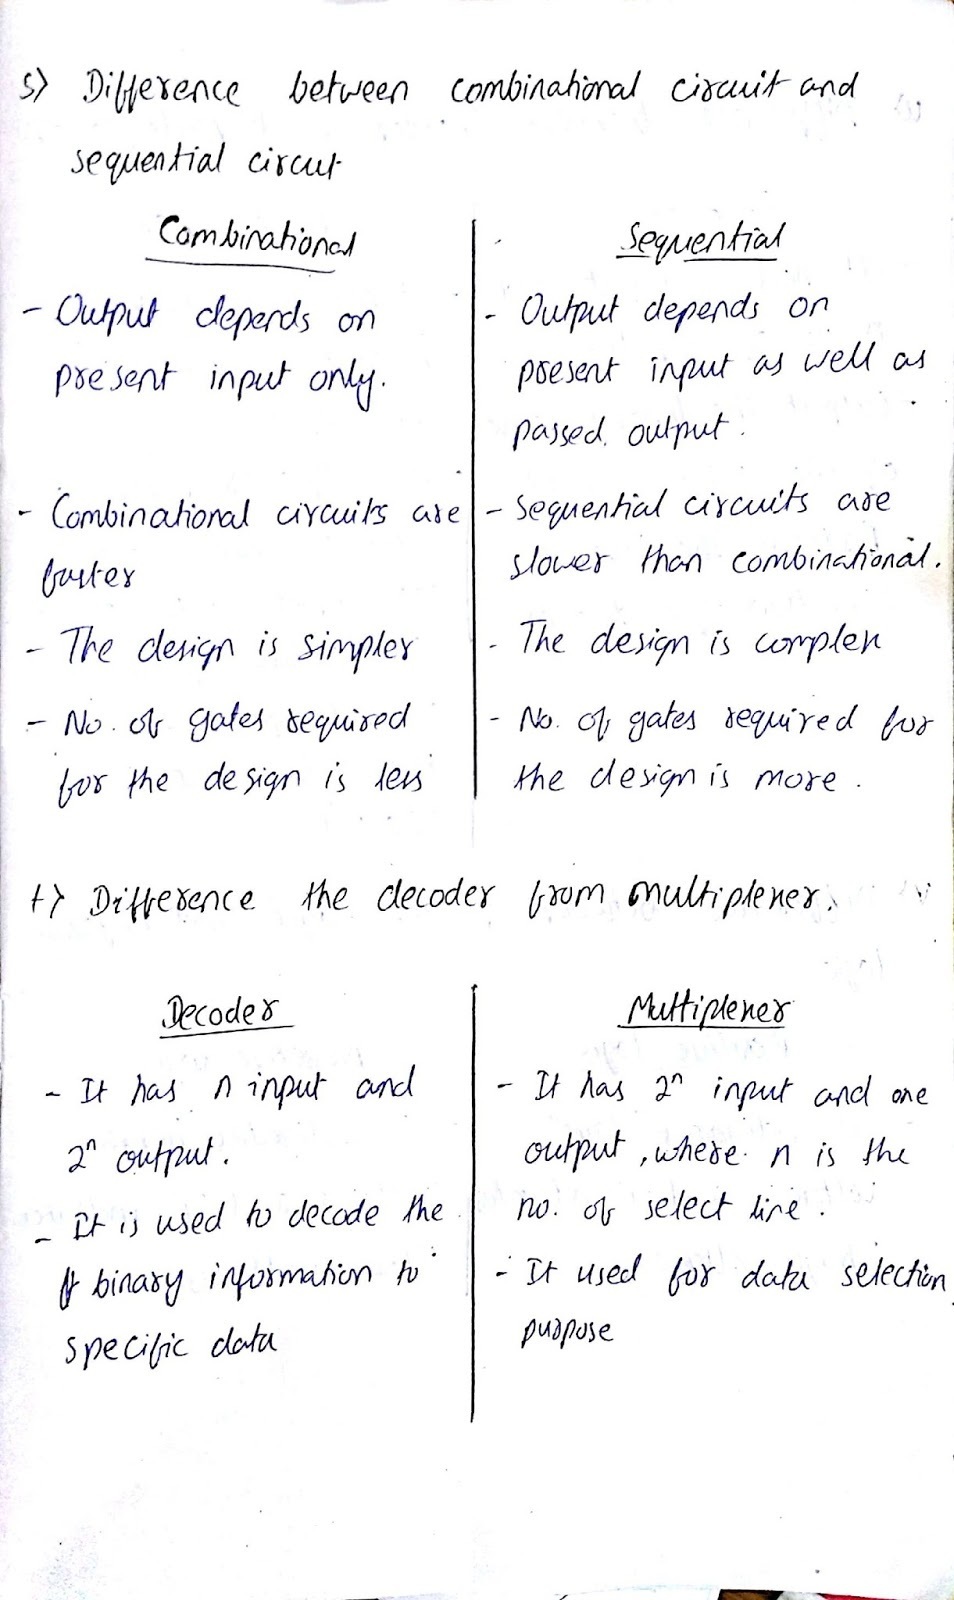 s) Difference between combinational circuit and
sequential circut
Combinational
- Output depends on
present input only.
- Combinational circuits are
faster
- The design is simpler
- No. of gates required
for the design is less
Sequential
- Output depends on
present input as well as
passed output.
- Sequential circuits are
slower than combinational.
- The design is complex
- No. of gates required for
the design is more.
t) Difference the decoder from multiplexer.
Decoder
- It has n input and
2ⁿ output.
- It is used to decode the
binary information to
specific data
Multiplexer
- It has 2ⁿ input and one
output, where n is the
no. of select line.
- It used for data selection
purpose